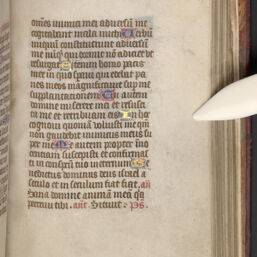 omnes inimici mei adversum me
cogitabant mala michi Verbū
iniquū constituerunt adversū
me nūquid qui dormit nō adiciet ut
resurgat Etenim homo pacis
mee in quo speravi qui edebat pa
nes meos magnificavit sup me
supplantationem Tu autem
domine miserere mei et resusci
ta me et retribuam eis In hoc
cognovi quoniā voluisti me qm̄
non gaudebit inimicus meus su
per me Me autem propter ino
centiam suscepisti et confirmas
ti in conspectu tuo in eternū Be
nedictus dominus deus israel a
seculo et in seculum fiat fiat añ
Sana domine animam meā qa
peccavi tibi. añt. Sitivit. ps.